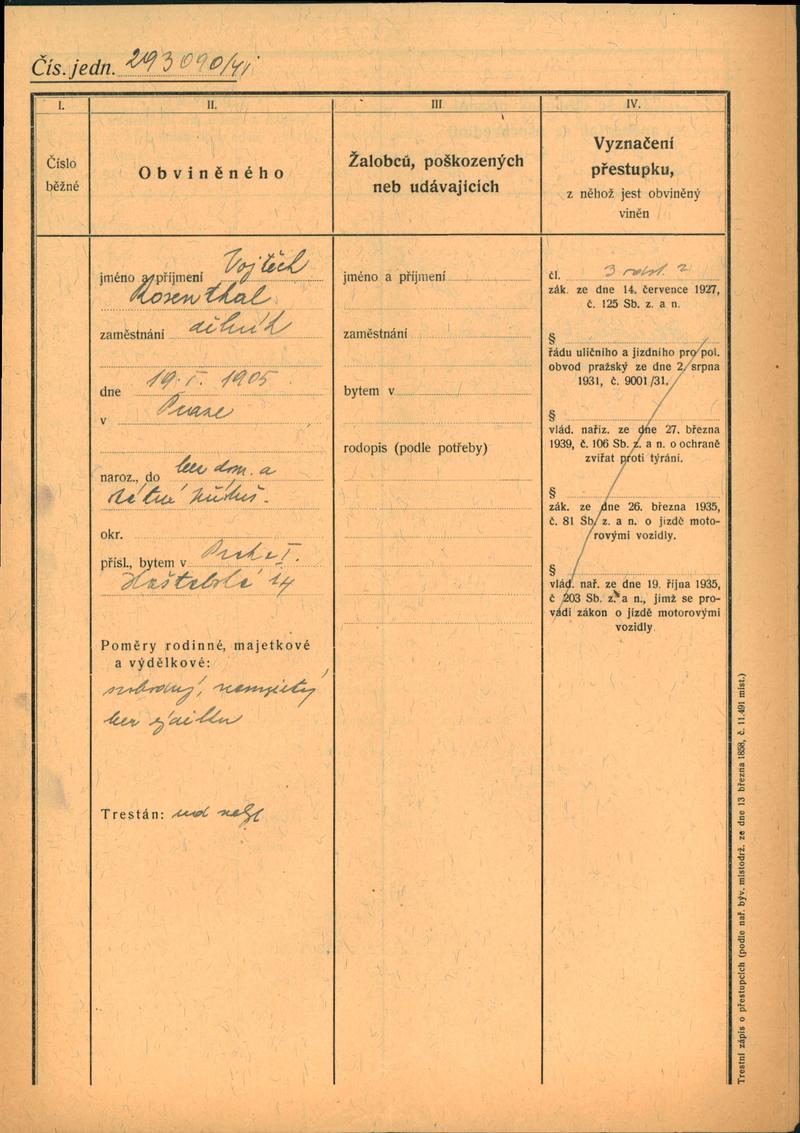 Čís. jedn. 293090/41
I.
Číslo
běžné
II.
Obviněného
III
Žalobců, poškozených
neb udávajících
IV.
Vyznačení
přestupku,
z něhož jest obviněný
viněn
jméno a příjmení Vojtěch
Rosenthal
zaměstnání dělník
dne 19. I. 1905
v Praze
naroz., do bez dom. a
okr.
přísl., bytem v Praha I.
Haštalská 14
Poměry rodinné, majetkové
a výdělkové:
svobodný, nemajetný
bez výdělku
Trestán:
jméno a příjmení
zaměstnání
bytem v
rodopis (podle potřeby)
čl. 3 odst. 2
zák. ze dne 14. července 1927,
č. 125 Sb. z. a n.
§
řádu uličního a jízdního pro pol.
obvod pražský ze dne 2. srpna
1931, č. 9001/31.
§
vlád. nařiz. ze dne 27. března
1939, č. 106 Sb. z. a n. o ochraně
zvířat proti týrání.
§
zák. ze dne 26. března 1935,
č. 81 Sb. z. a n. o jízdě moto-
rovými vozidly.
§
vlád. nař. ze dne 19. října 1935,
č 203 Sb. z. a n., jímž se pro-
vádí zákon o jízdě motorovými
vozidly.
Trestní zápis o přestupcích (podle nař. býv. místodrž. ze dne 13 března 1858, č. 11.491 míst.)